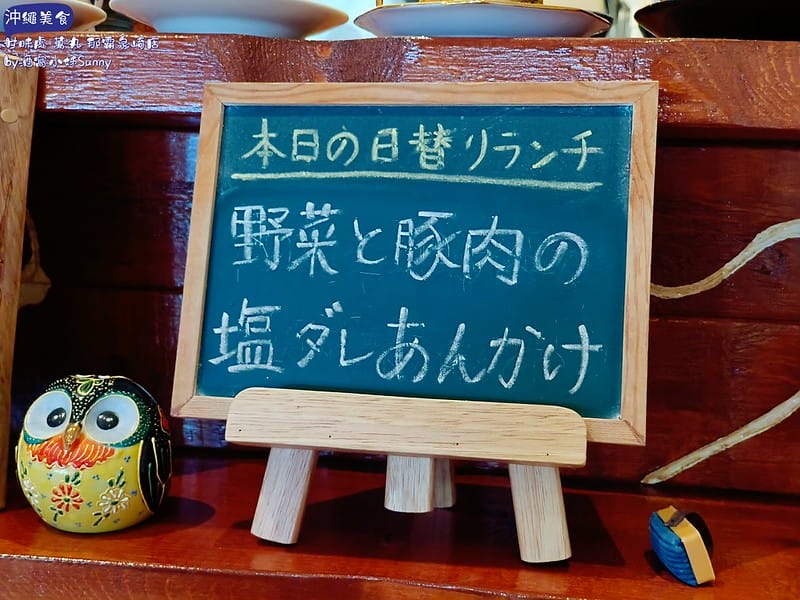 沖繩美食
甘味處 萬丸 那霸泉崎店
by.西高小妹Sunny
本日の日替リランチ
野菜と豚肉の
塩ダレあんかけ